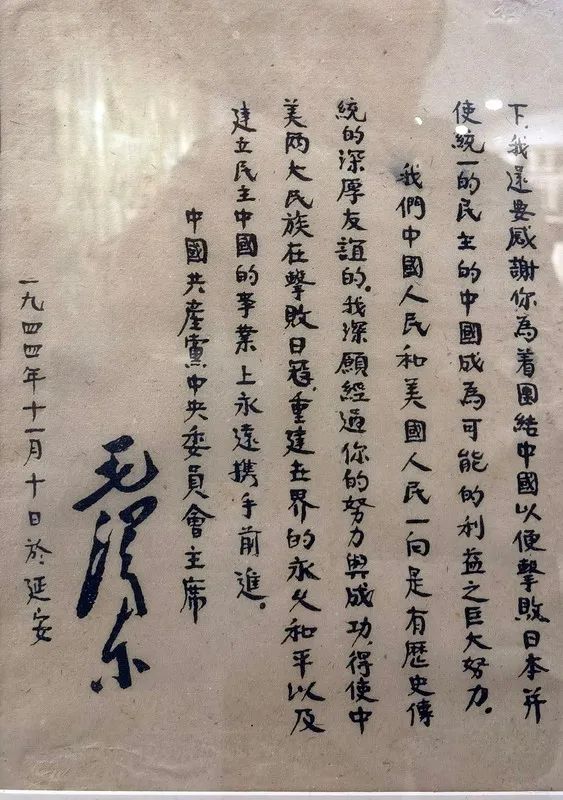 下,我還要感謝你為着團結中國以便擊敗日本并
使統一的民主的中國成為可能的利益之巨大努力。
我們中國人民和美國人民一向是有歷史傳
統的深厚友誼的。我深願經過你的努力與成功,得使中
美兩大民族在擊敗日寇,重建世界的永久和平以及
建立民主中國的事業上永遠攜手前進。
中國共產黨中央委員會主席
毛澤东
一九四四年十一月十日於延安